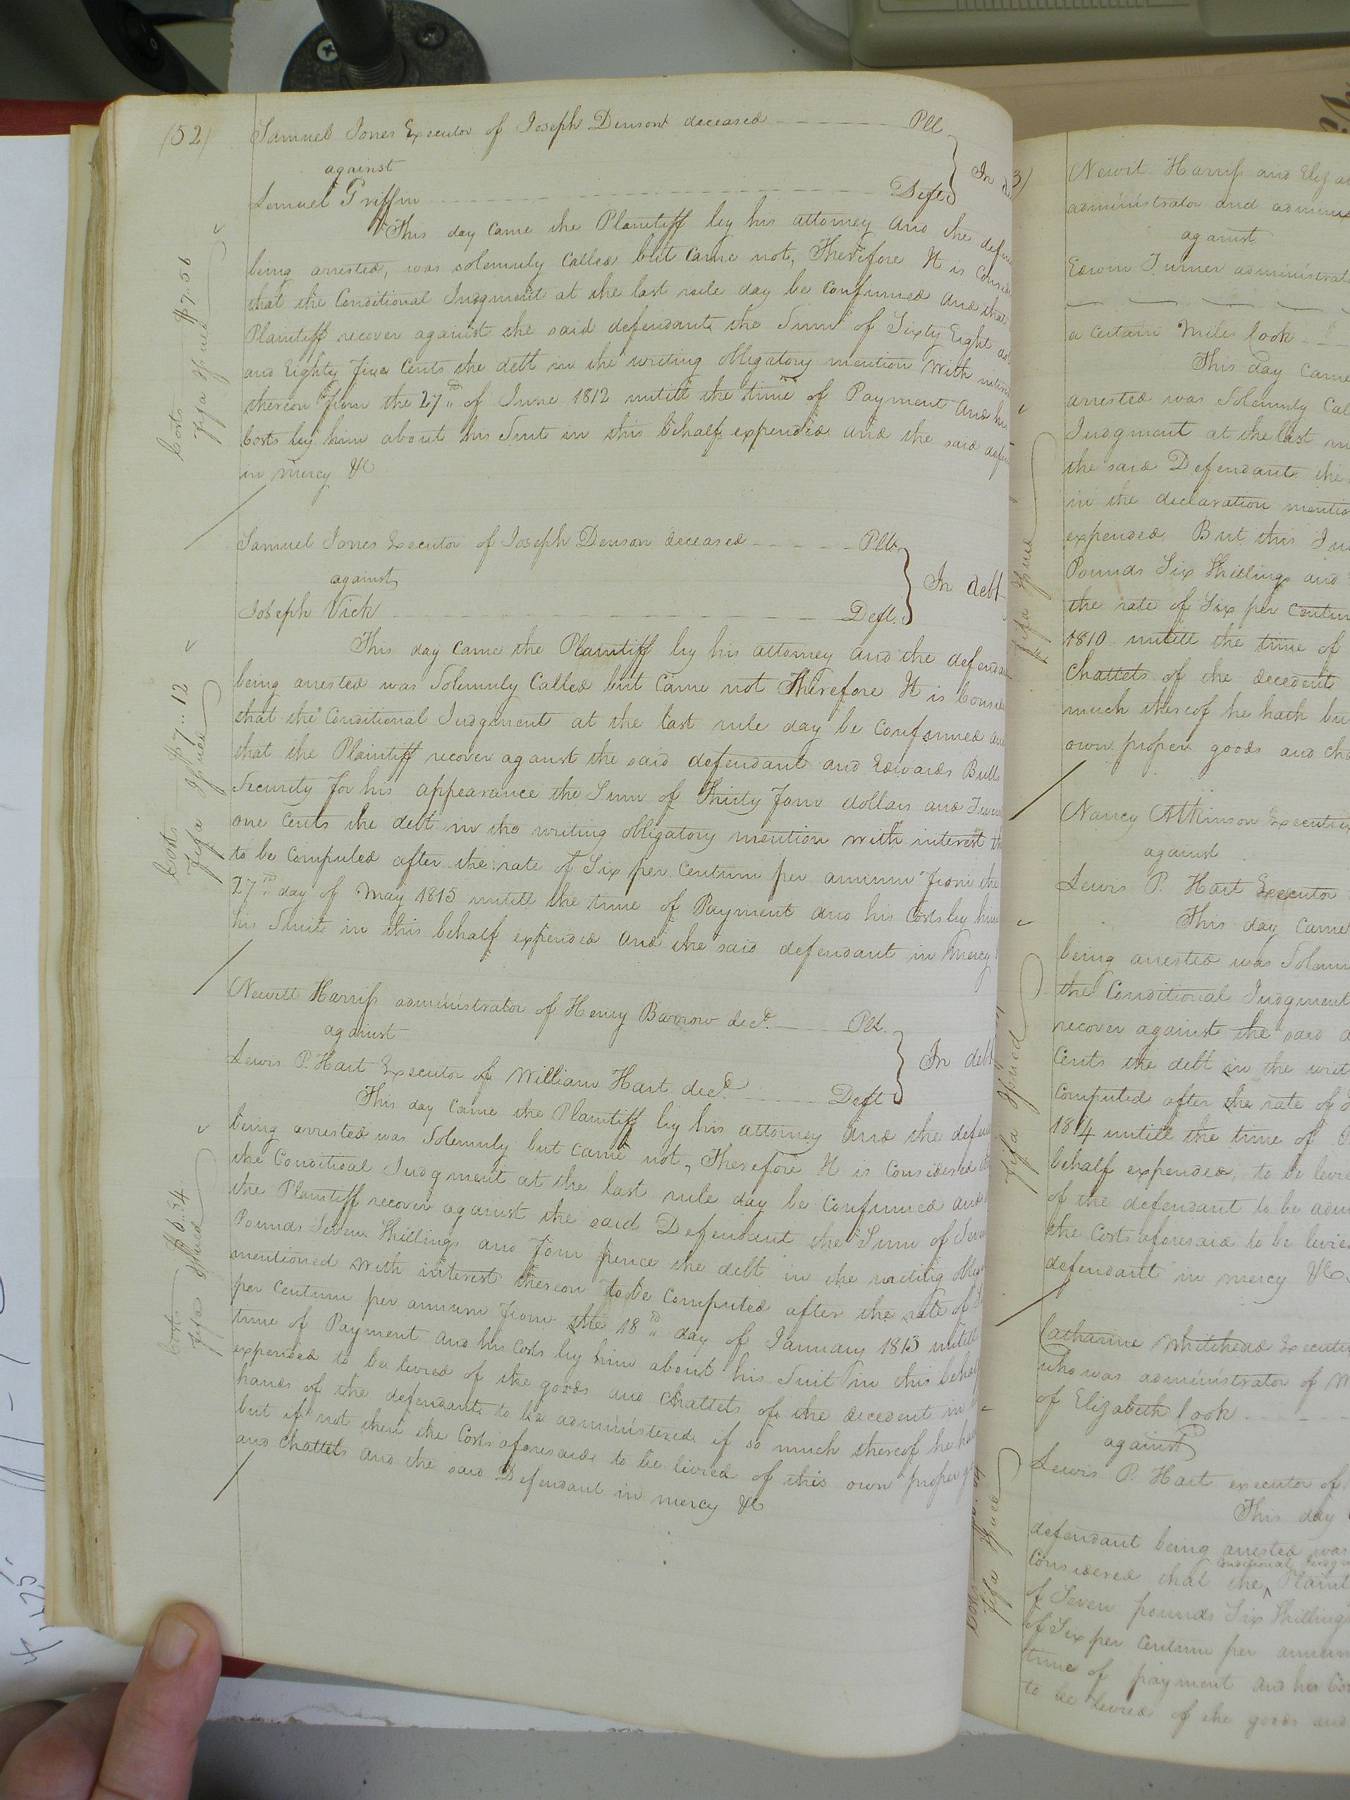 (52)
Samuel Jones Executor of Joseph Denson deceased Plt
against
Lemuel Griffin Deft
In
This day came the Plaintiff by his attorney and the
being arrested, was solemnly called but came not, Therefore It is
that the Conditional Judgment at the last rule day be confirmed and that
Plaintiff recover against the said defendant the Sum of Sixty Eight
and Eighty five Cents the debt in the writing obligatory mention With
thereon from the 27 of June 1812 untill the time of Payment And his
Costs by him about his Suit in this behalf expended and the said
in mercy &C
Costs $7.56
fifa Issued
Samuel Jones Executor of Joseph Denson deceased Plt
against
Joseph Vick Deft
In debt
This day came the Plaintiff by his attorney and the defendant
being arrested was Solemnly Called but Came not Therefore It is
that the Conditional Judgment at the last rule day be confirmed and
that the Plaintiff recover against the said defendant and Edwards Butts
Security for his appearance the Sum of Thirty four dollars and
one Cents the debt in the writing obligatory mention with interest
to be Computed after the rate of Six per Centum per annum from the
27th day of May 1815 untill the time of Payment and his Costs by him
his Suit in this behalf expended and the said defendant in Mercy
Costs $7..12
fifa Issued
Newitt Harriss administrator of Henry Barrow decd. Plt.
against
Lewis P. Hart Executor of William Hart decd. Deft
In debt
This day came the Plaintiff by his attorney And the
being arrested was Solemnly but came not, Therefore It is Considered
the Conditional Judgment at the last rule day be confirmed and
the Plaintiff recover against the said Defendant the Sum of
Pounds Seven Shillings and four pence the debt in the writing
mentioned with interest thereon to be Computed after the rate of
per Centum per annum from the 18th day of January 1813 untill
time of Payment and his Costs by him about his Suit in this behalf
expended to be levied of the goods and chattels of the decedent in
hands of the defendant to be administered if so much thereof he
but if not then the Costs aforesaid to be levied of this own proper
and Chattels and the said Defendant in mercy &C
Costs
fifa Issued
Newit Harriss and
administrator and
against
Edwin Turner
a certain Miles
This day came
arrested was Solemnly
Judgment at the last
the said Defendant the
in the declaration
expended But this
Pounds Six Shillings and
the rate of Six per Centum
1810 untill the time of
Chattels of the decedent
much thereof he hath
own proper goods and
fifa Issued
Nancy Atkinson
against
Lewis P. Hart Executor
This day came
being arrested was
the Conditional Judgment
recover against the said
Cents the debt in the
computed after the rate of
1814 untill the time of
behalf expended, to be
of the defendant to be
the Costs aforesaid to be
defendant in mercy &C
fifa Issued
Catharine Whitehead
who was administrator of
of Elizabeth
against
Lewis P. Hart executor of
This day
defendant being arrested was
Considered that the
of Seven pounds Six Shillings
of Six per Centum per annum
time of payment and his
to be levied of the goods and
fifa Issued